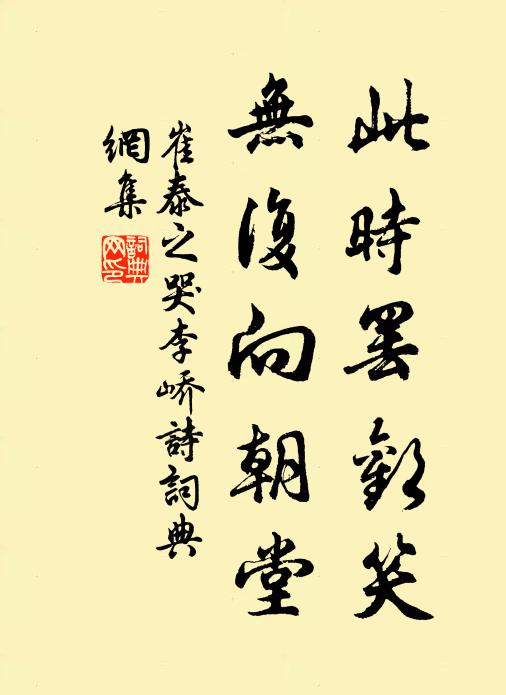 此時罢歡笑
無復向朝堂
崔泰之哭李嶠詩詞典
網集
詞典網印